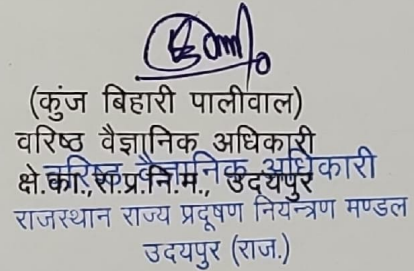 (कुंज बिहारी पालीवाल)
वरिष्ठ वैज्ञानिक अधिकारी
क्षे.का.,रा.प्र.नि.म., उदयपुर
वरिष्ठ वैज्ञानिक अधिकारी
राजस्थान राज्य प्रदूषण नियन्त्रण मण्डल
उदयपुर (राज.)